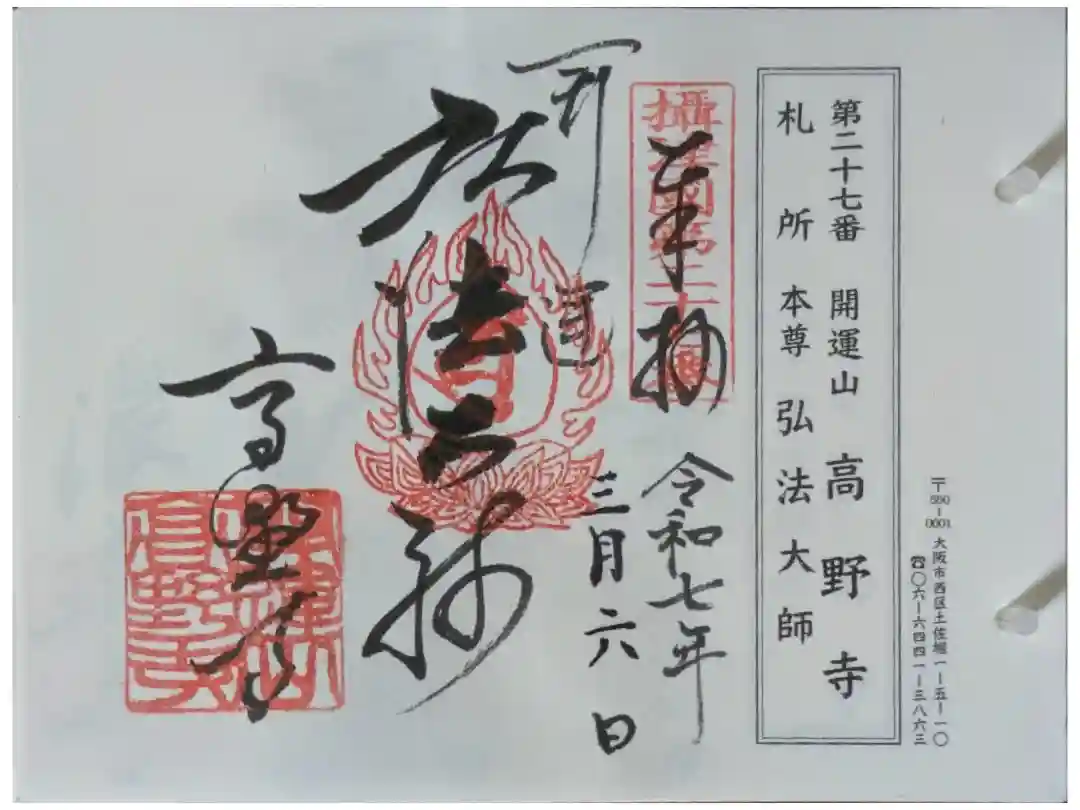 〒550-0001 大阪市西区土佐堀一ー五ー一〇
☎〇六ー六四四一ー三八六三
第二十七番 開運山 高野寺
札所 本尊 弘法大師
攝津國第
奉拝 令和七年
三月六日
開運
弘法大師
高野寺